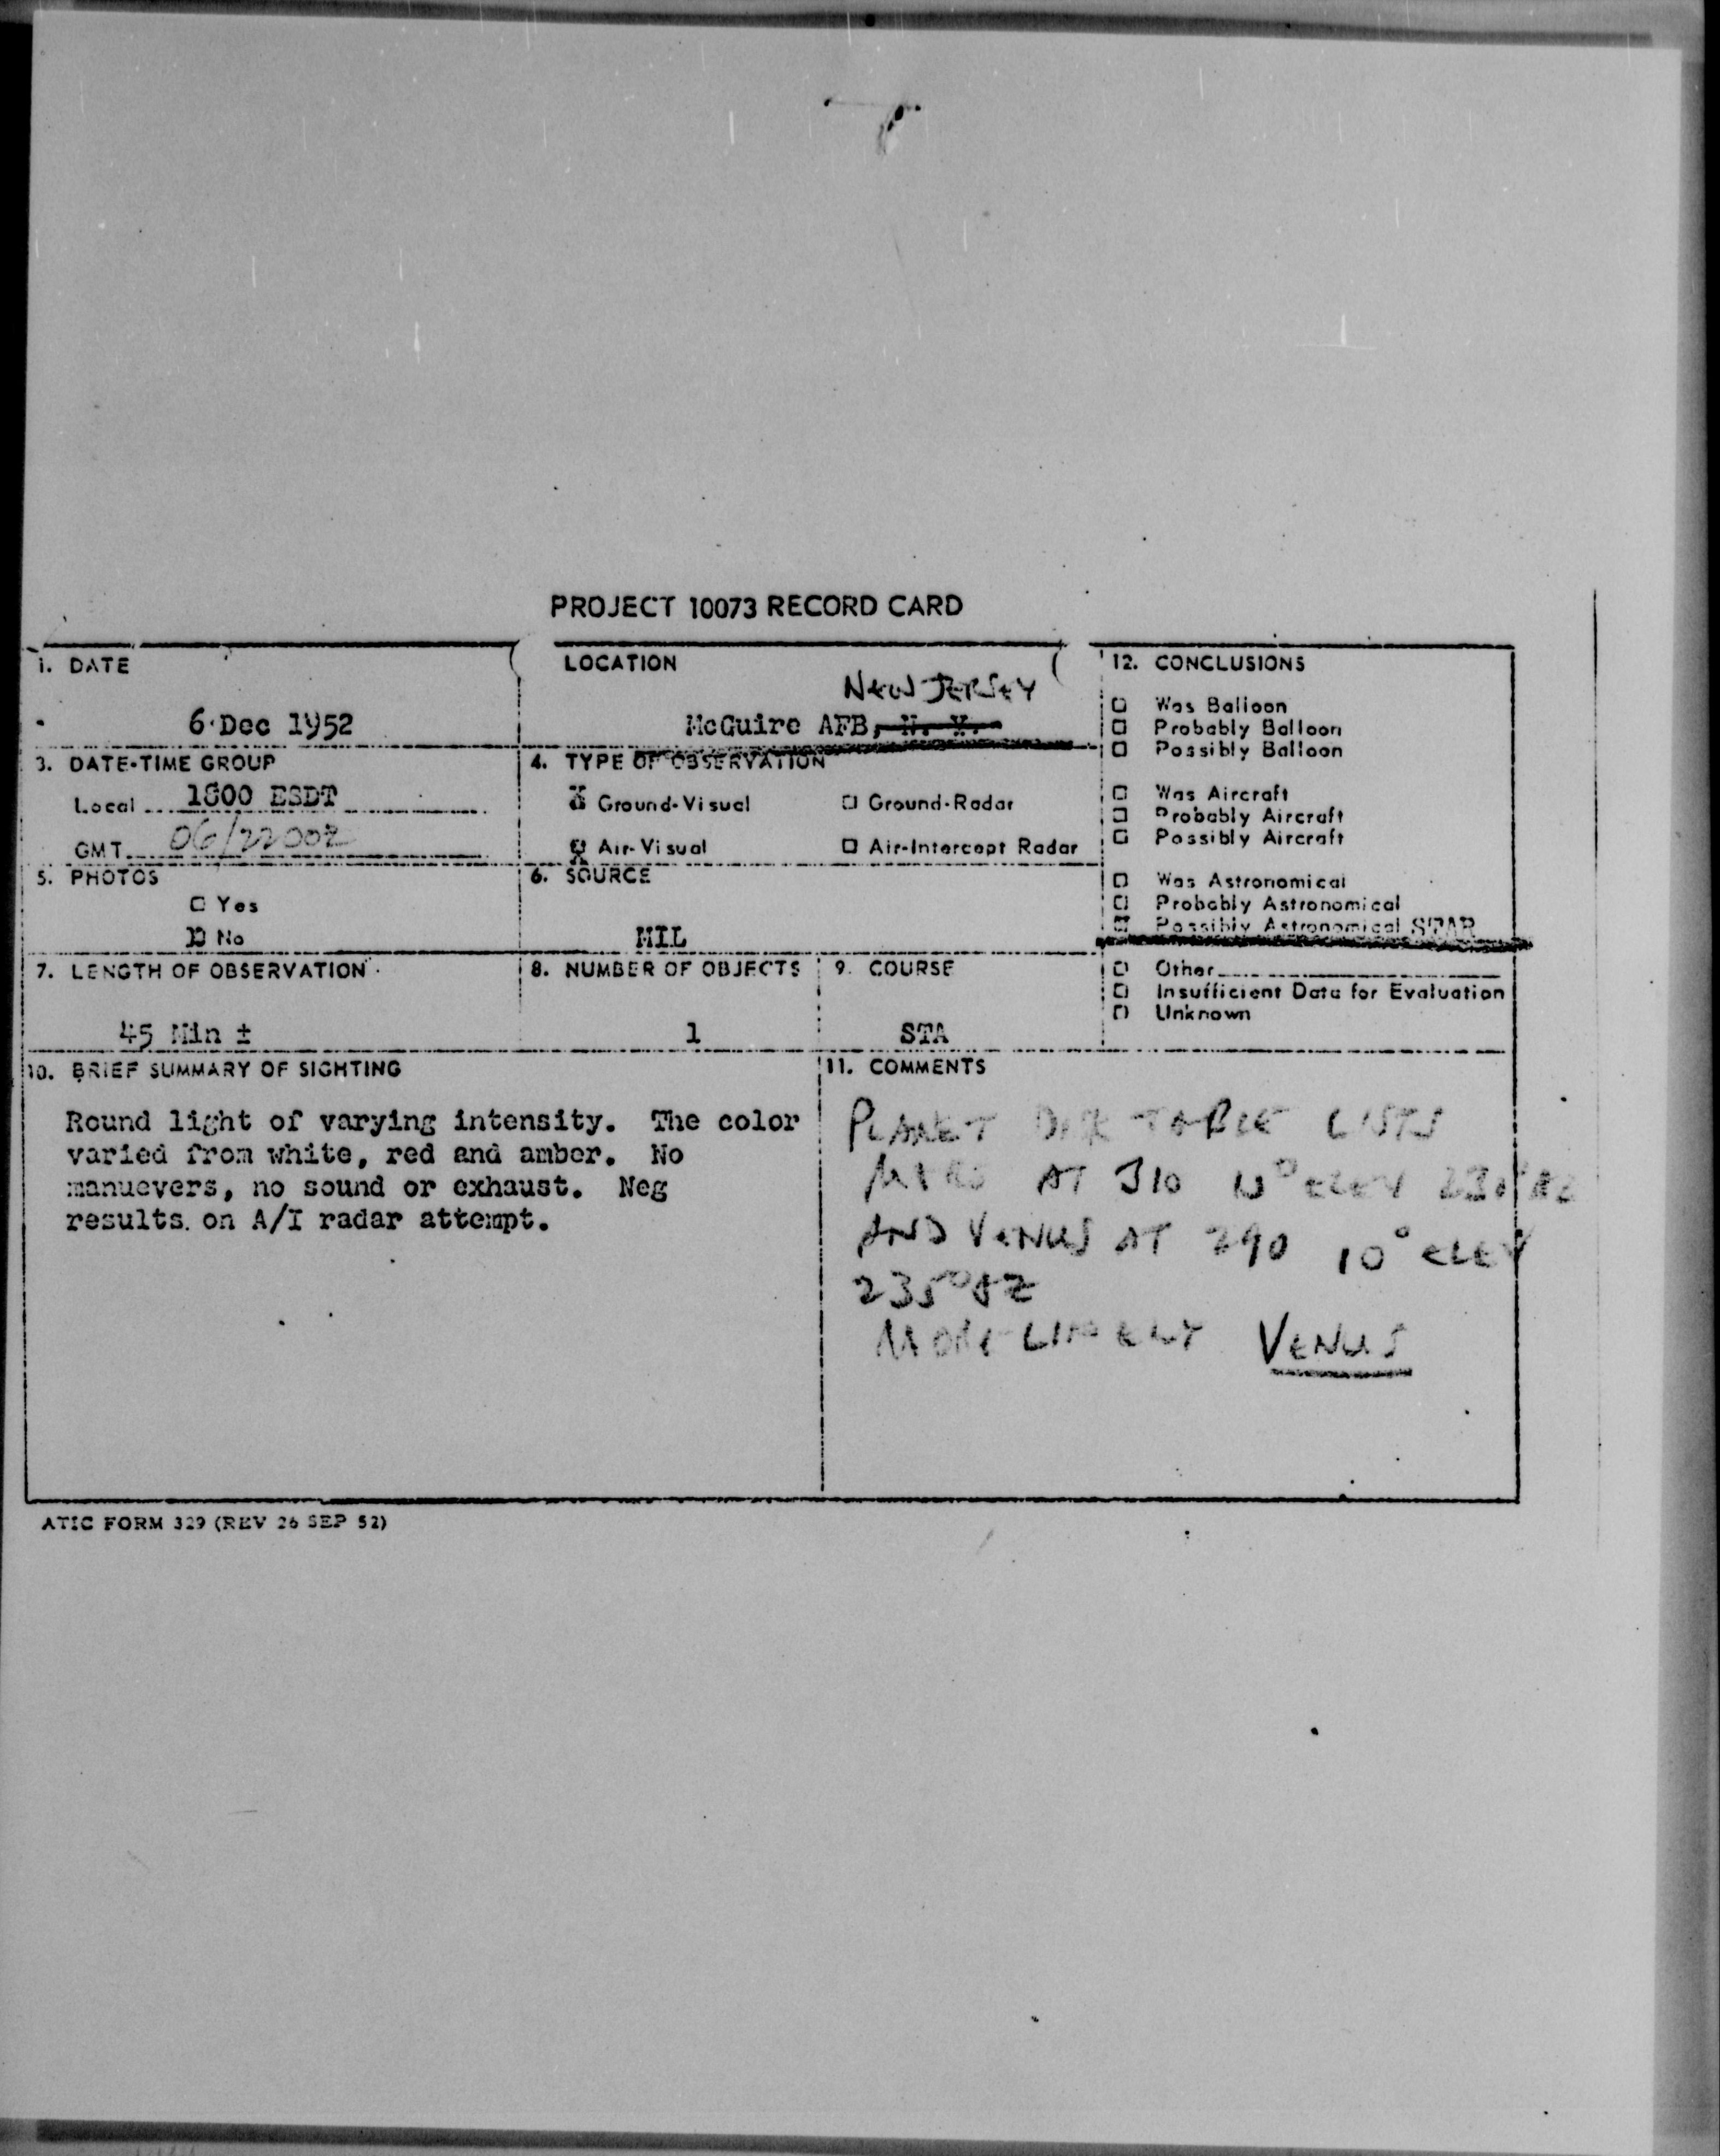 PROJECT 10073 RECORD CARD
1. DATE
6 Dec 1952
LOCATION
NEW JERSEY
McGuire AFB, N. Y.
12. CONCLUSIONS
Was Balloon
Probably Balloon
Possibly Balloon
Was Aircraft
Probably Aircraft
Possibly Aircraft
Was Astronomical
Probably Astronomical
Possibly Astronomical STAR
Other
Insufficient Data for Evaluation
Unknown
3. DATE-TIME GROUP
Local 1800 ESDT
GMT 06/2200Z
4. TYPE OF OBSERVATION
Ground-Visual
Ground-Radar
Air-Visual
Air-Intercept Radar
5. PHOTOS
Yes
No
6. SOURCE
MIL
7. LENGTH OF OBSERVATION
45 Min ±
8. NUMBER OF OBJECTS
1
9. COURSE
STA
10. BRIEF SUMMARY OF SIGHTING
Round light of varying intensity. The color
varied from white, red and amber. No
manuevers, no sound or exhaust. Neg
results. on A/I radar attempt.
11. COMMENTS
PLANET TABLE LISTS
AT 310 ELEV
AND VENUS AT 290 10° ELEV
235° AZ
MORE LIKELY VENUS
ATIC FORM 329 (REV 26 SEP 52)